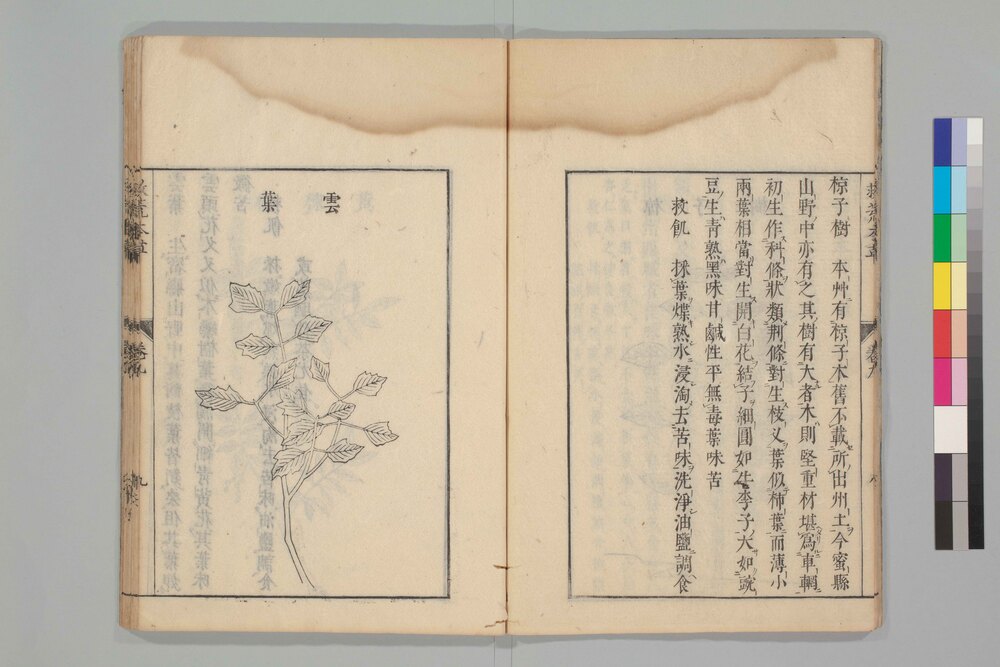 椋子樹 本艸有椋子木舊不載所出州土今蜜縣
山野中亦有之其樹有大者木則堅重材堪爲車輞
初生作科條狀類荆條對生枝叉葉似柿葉而薄小
兩葉相當對生開白花結子細圓如牛李子大如豌
豆生青熟黑味甘鹹性平無毒葉味苦
救飢 採葉煠熟水浸淘去苦味洗淨油鹽調食
雲
葉